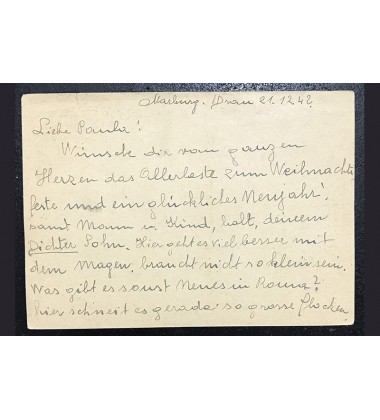 Marburg. Drau 21.12.42
Liebe Paula!
Wünsche dir vom ganzen
Herzen das Allerbeste zum Weihnachts
feste und ein glückliches Neujahr!
samt Mann u Kind, halt, deinem
Dichter Sohn. Hier geht es viel besser mit
dem Magen. braucht nicht so klein sein.
Was gibt es sonst Neues in
hier schneit es gerade so grosse Flocken